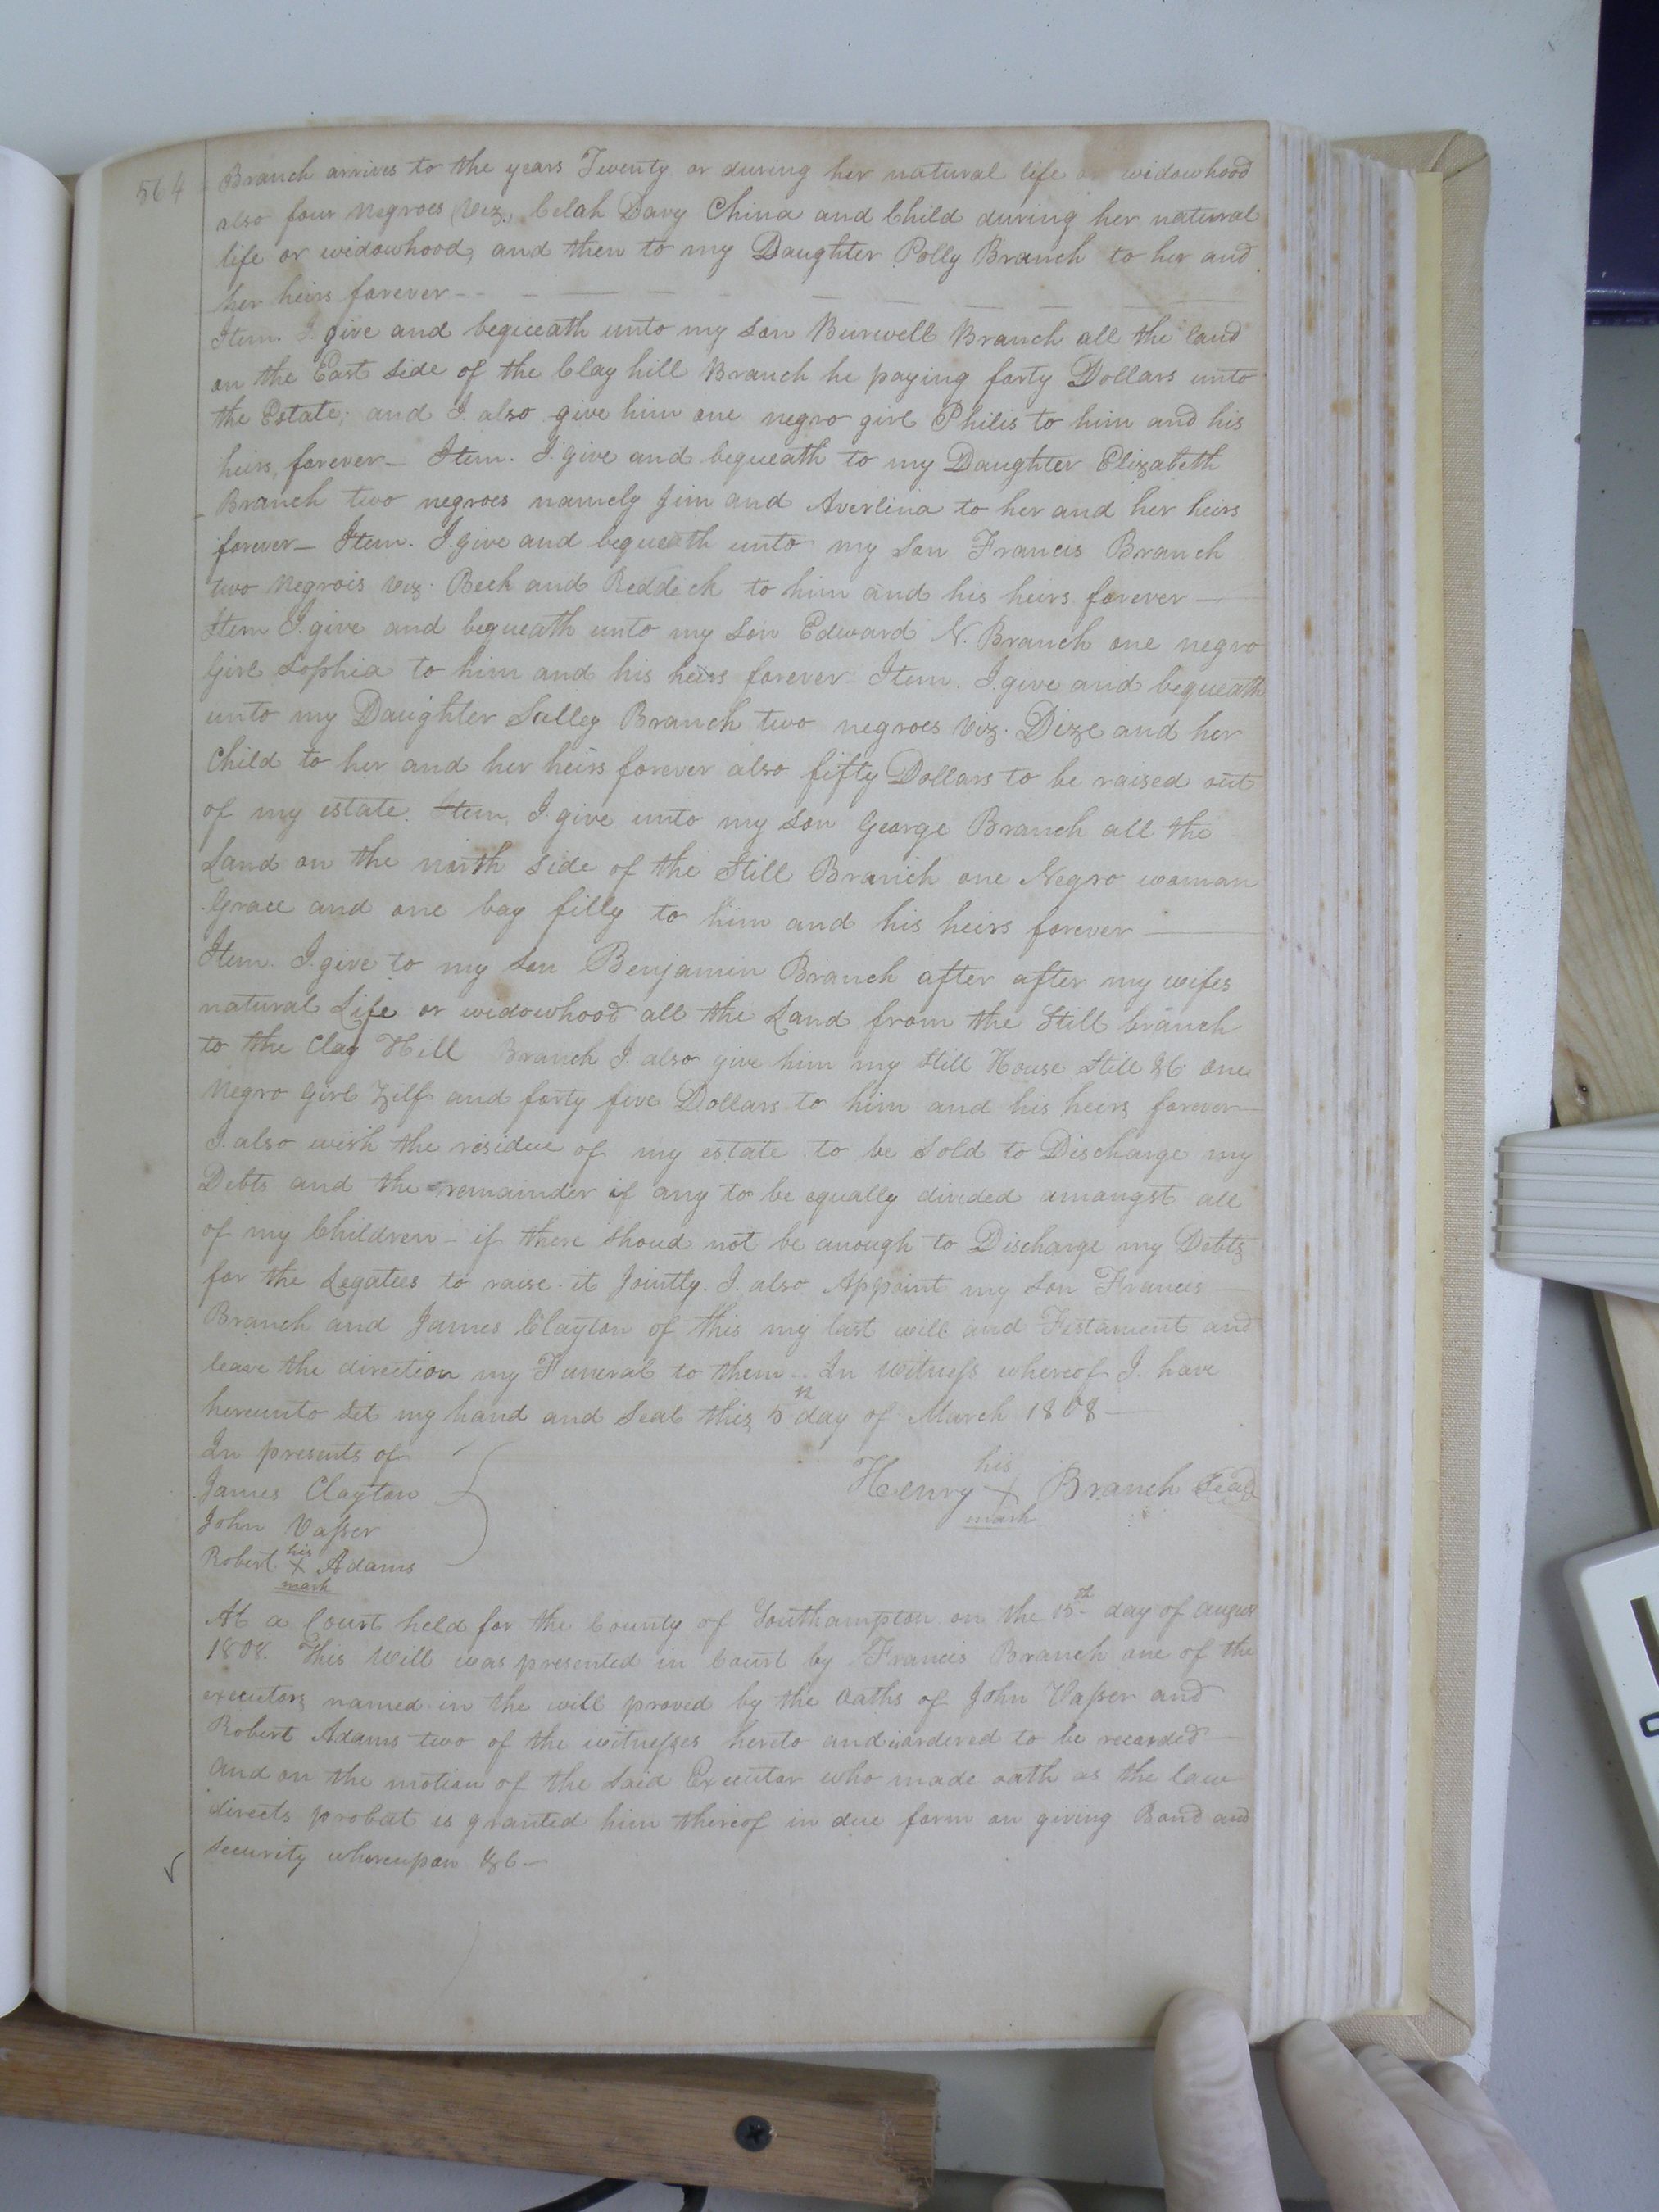 564
Branch arrives to the years Twenty or during her natural life or widowhood
also four negroes (Viz., Celah Davy China and Child during her natural
life or widowhood, and then to my Daughter Polly Branch to her and
her heirs forever
Item. I give and bequeath unto my Son Burwell Branch all the land
on the East side of the Clay hill Branch he paying forty Dollars unto
the Estate; and I also give him one negro girl Philis to him and his
heirs, forever - Item. I give and bequeath to my Daughter Elizabeth
Branch two negroes namely Jim and Averlina to her and her heirs
forever - Item. I give and bequeath unto my Son Francis Branch
two Negrois Viz. Beck and Reddick to him and his heirs forever -
Item I give and bequeath unto my Son Edward N. Branch one negro
Girl Sophia to him and his heirs forever - Item. I give and bequeath
unto my Daughter Salley Branch two negroes Viz. Dize and her
Child to her and her heirs forever also fifty Dollars to be raised out
of my estate. Item, I give unto my Son George Branch all the
Land on the north side of the Still Branch one Negro woman
Grace and one bay filly to him and his heirs forever
Item. I give to my Son Benjamin Branch after after my wifes
natural Life or widowhood all the Land from the Still branch
to the Clay Hill Branch I also give him my Still House Still &C one
Negro Girl Zilf and forty five Dollars to him and his heirs forever
I also wish the residue of my estate to be Sold to Discharge my
Debts and the remainder if any to be equally divided amongst all
of my Children - if there shoud not be anough to Discharge my Debts
for the Legatees to raise it Jointly. I also Appoint my Son Francis
Branch and James Clayton of this my last will and Testament and
leave the direction my Funeral to them. In Witness whereof I have
hereunto Set my hand and Seal this 5th day of March 1808
In presents of
James Clayton
John Vasser
Robert his X mark Adams
Henry his X mark Branch Seal
At a Court held for the County of Southampton on the 15th day of August
1808. This Will was presented in Court by Francis Branch one of the
executors named in the will proved by the Oaths of John Vasser and
Robert Adams two of the witnesses hereto and ordered to be recorded
And on the motion of the Said Executor who made oath as the law
directs probat is granted him thereof in due form on giving Bond and
Security whereupon &C -